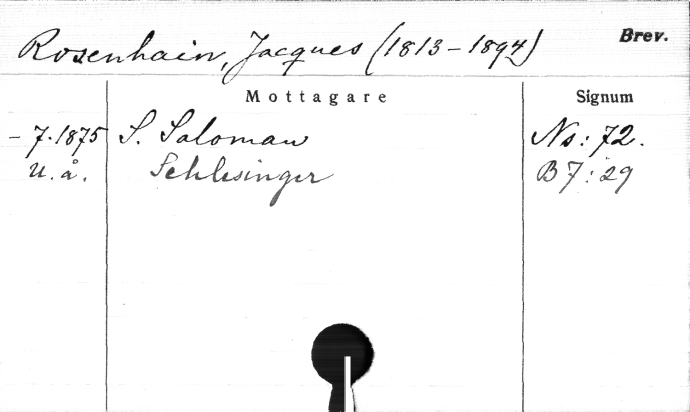 Rosenhain, Jacques (1813-1894) Brev.
Mottagare Signum
- 7.1875 S. Saloman Ns: 72.
U. å. Schlesinger B7: 29